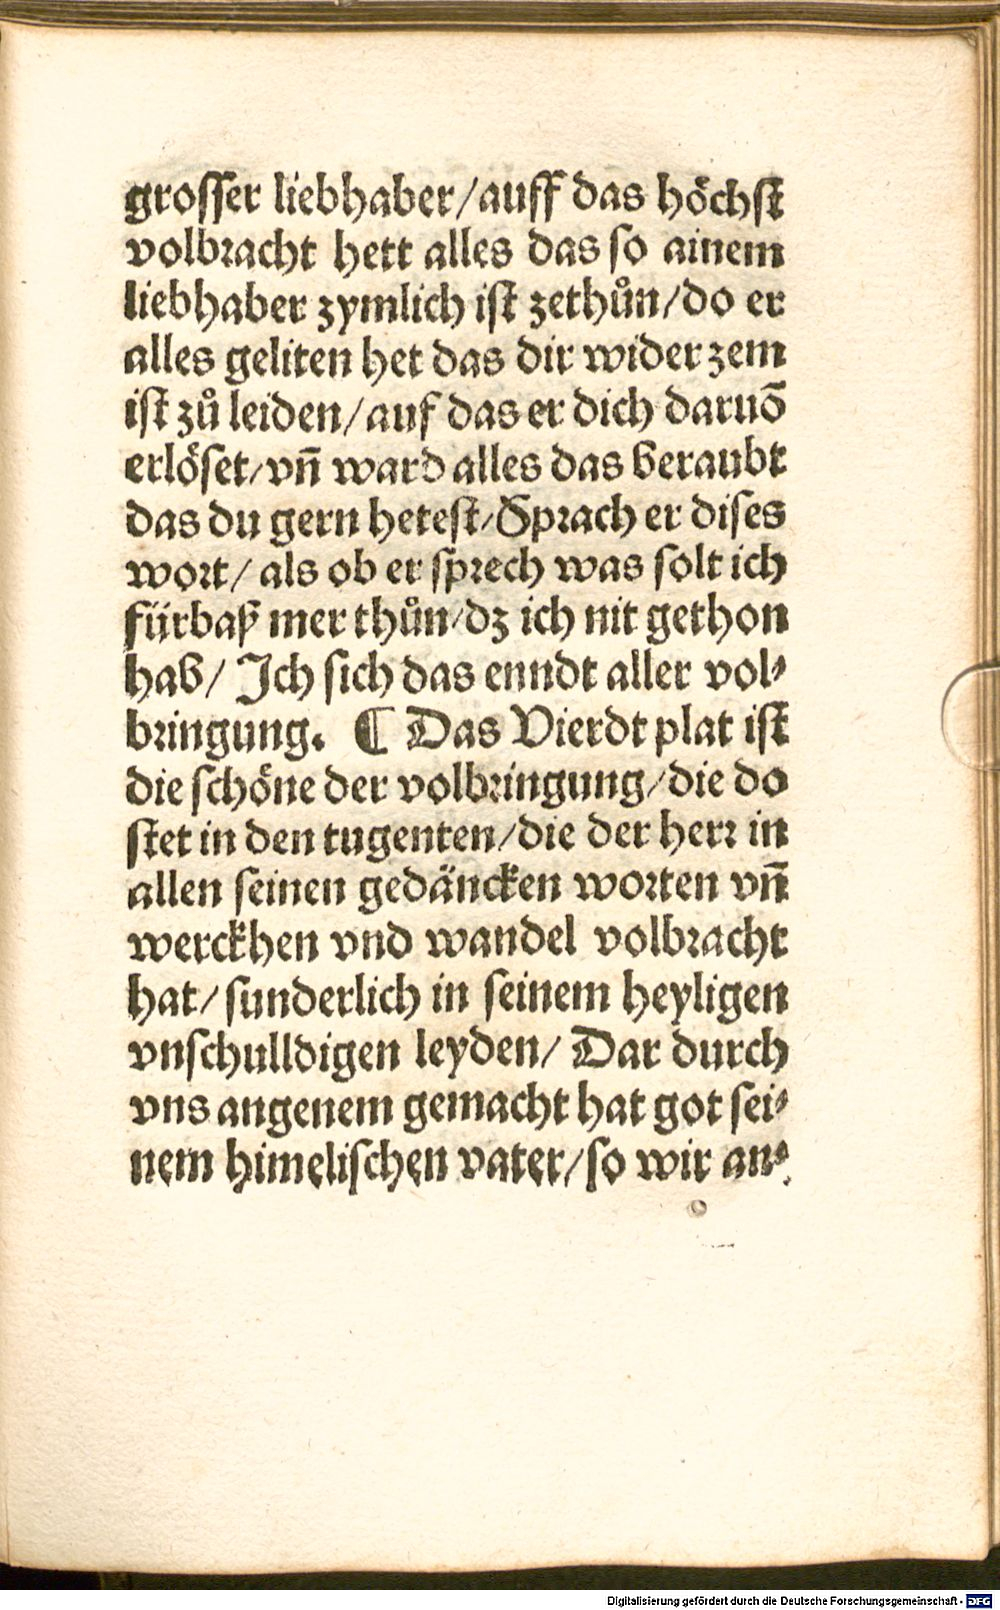 grosser liebhaber/auff das höchst
volbracht hett alles das so ainem
liebhaber zymlich ist zethůn/do er
alles geliten het das dir wider zem
ist zů leiden/auf das er dich daruō
erlöset/vn̄ ward alles das beraubt
das du gern hetest/Sprach er dises
wort/ als ob er sprech was solt ich
fürbaß mer thůn/dz ich nit gethon
hab/ Ich sich das enndt aller vol⸗
bringung. ¶ Das Vierdt plat ist
die schöne der volbringung/die do
stet in den tugenten/die der herr in
allen seinen gedäncken worten vn̄
werckhen vnd wandel volbracht
hat/ sunderlich in seinem heyligen
vnschulldigen leyden/ Dar durch
vns angenem gemacht hat got sei⸗
nem himelischen vater/so wir an⸗
Digitalisierung gefördert durch die Deutsche Forschungsgemeinschaft - DFG